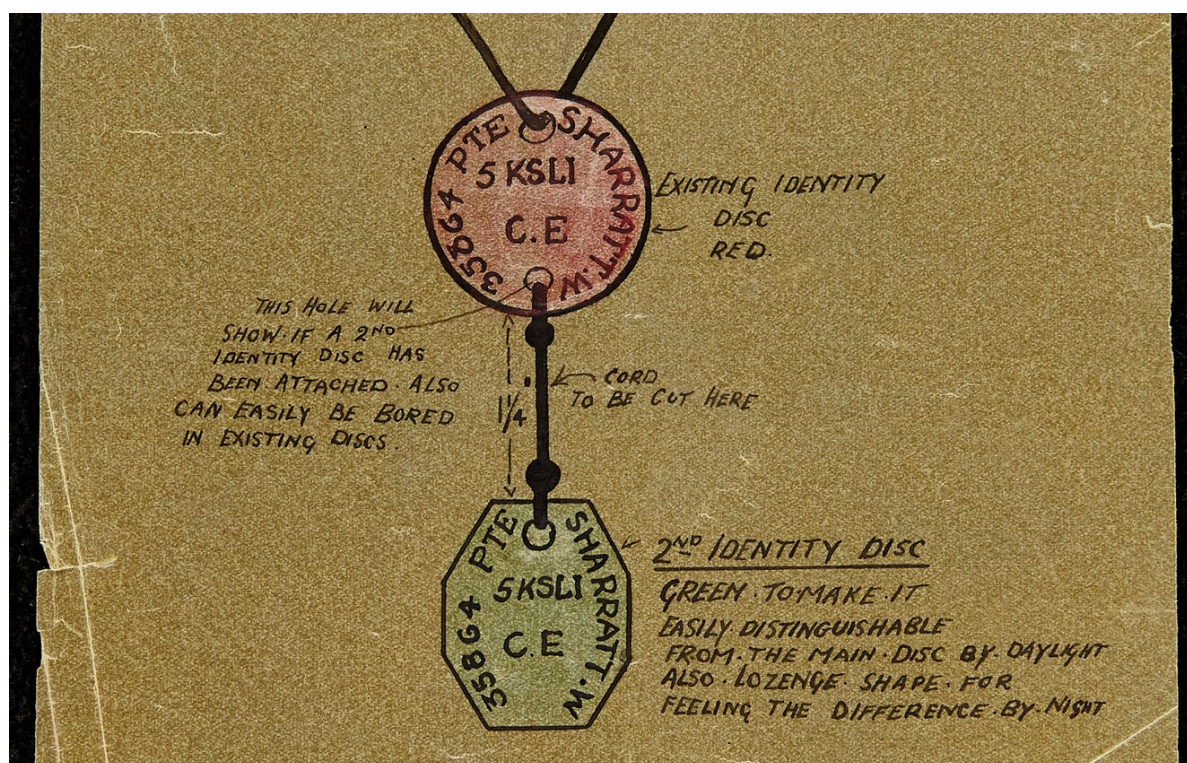 35864 PTE SHARRATT.W
5 KSLI
C.E
EXISTING IDENTITY
DISC
RED.
THIS HOLE WILL
SHOW.IF A 2ND
IDENTITY DISC HAS
BEEN ATTACHED. ALSO
CAN EASILY BE BORED
IN EXISTING DISCS.
1/4
CORD
TO BE CUT HERE
35864 PTE SHARRATT.W
5 KSLI
C.E
2ND IDENTITY DISC
GREEN.TO.MAKE.IT
EASILY.DISTINGUISHABLE
FROM.THE MAIN.DISC BY.DAYLIGHT
ALSO.LOZENGE.SHAPE.FOR
FEELING THE DIFFERENCE.BY.NIGHT